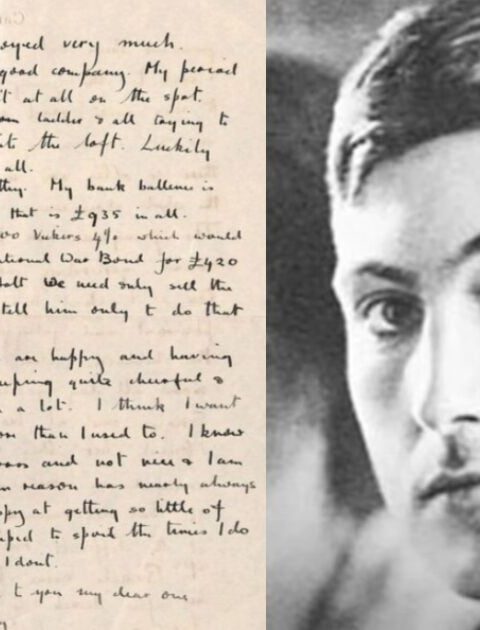 oyed very much.
good company. My period
t at all on the spot.
om ladder & all trying to
ito the loft. Luckily
all.
My bank ballence is
that is £935 in all.
00 Vickers 4% which would
ational War Bond for £420
we need only sell the
tell him only to do that
are happy and having
uping quite cheerful &
a lot. I think I want
on than I used to. I know
and not nice & I am
n reason has nearly always
ppy at getting so little of
upid to spoil the times I do
I dont.
t you my dear one